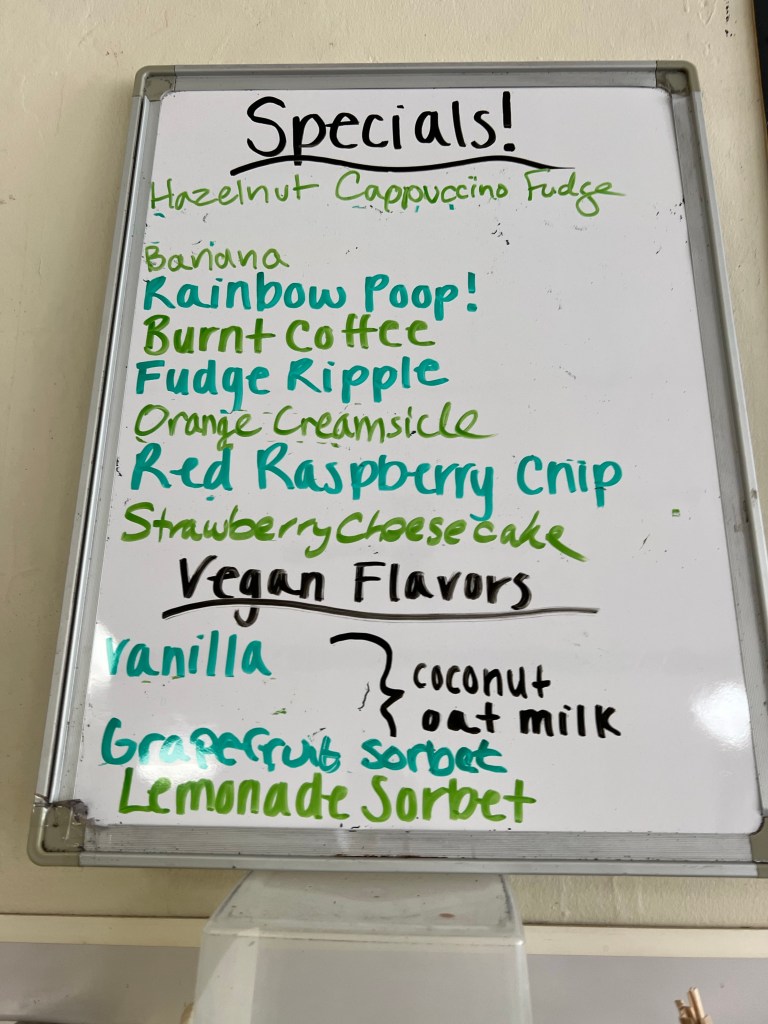 Specials!
Hazelnut Cappuccino Fudge
Banana
Rainbow Poop!
Burnt Coffee
Fudge Ripple
Orange Creamsicle
Red Raspberry Chip
Strawberry Cheesecake
Vegan Flavors
Vanilla } coconut
oat milk
Grapefruit sorbet
Lemonade Sorbet